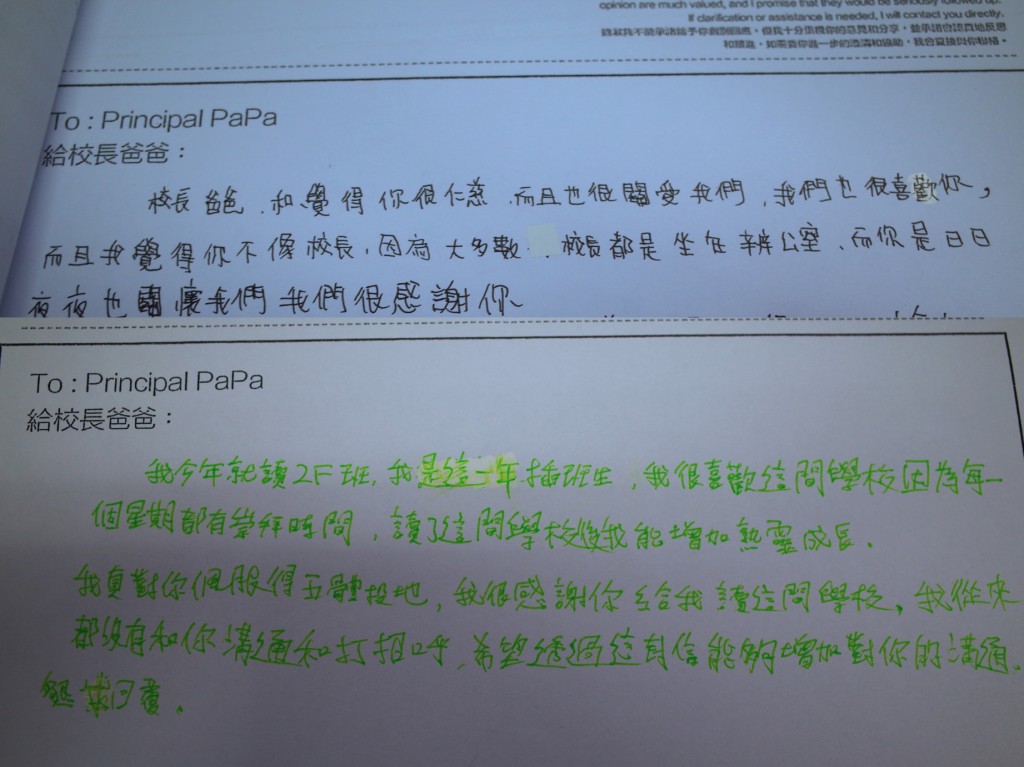 opinion are much valued, and I promise that they would be seriously followed up.
If clarification or assistance is needed, I will contact you directly.
和跟進，如需要你進一步的澄清和協助，我會直接與你聯絡。
To : Principal PaPa
給校長爸爸：
校長爸爸，和覺得你很仁慈，而且也很關愛我們，我們也很喜歡你，
而且我覺得你不像校長，因為大多數校長都是坐在辦公室，而你是日日
夜夜也關懷我們 我們很感謝你
To : Principal PaPa
給校長爸爸：
我今年就讀2F班，我是這一年插班生，我很喜歡這間學校因為每一
個星期都有崇拜時間，讀了這間學校後我能增加熱靈成長。
我真對你佩服得五體投地，我很感謝你給我讀這間學校，我從來
都沒有和你溝通和打招呼，希望透過這封信能夠增加對你的溝通。
回覆。